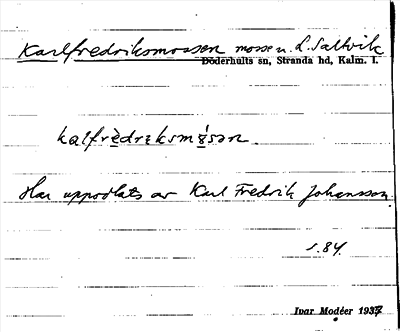 Karlfredriksmossen mosse u. L. Saltvik
Döderhults sn, Stranda hd, Kalm. l.
kalfrèdrɩksmɷ́sən.
Har uppodlats av Karl Fredrik Johansson.
s. 84.
Ivar Modéer 1937